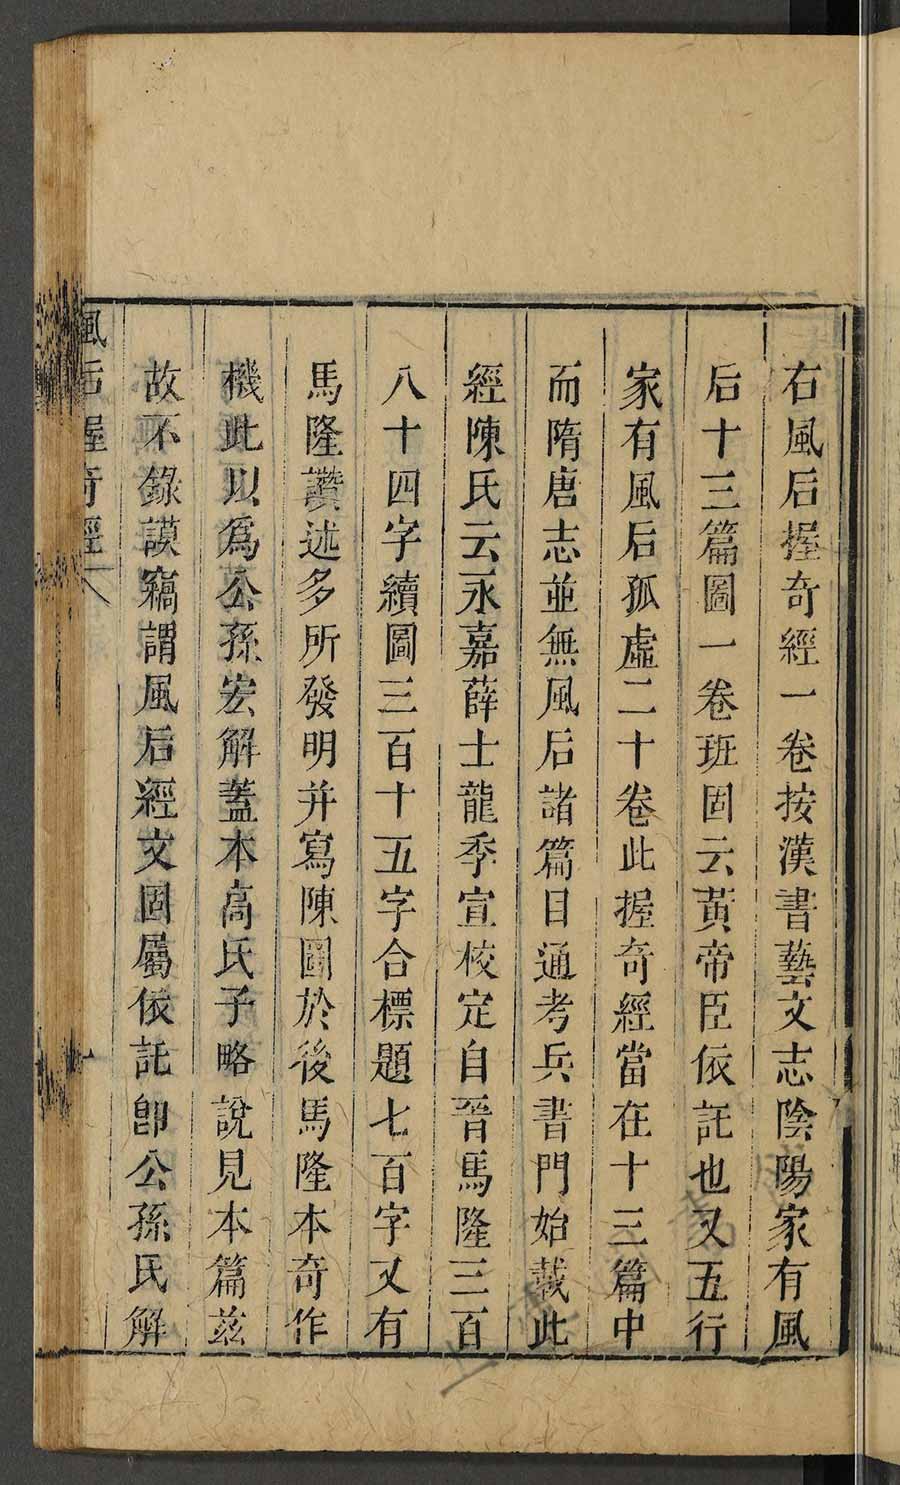 右風后握奇經一卷按漢書藝文志陰陽家有風
后十三篇圖一卷班固云黃帝臣依託也又五行
家有風后孤虛二十卷此握奇經當在十三篇中
而隋唐志並無風后諸篇目通考兵書門始載此
經陳氏云永嘉薛士龍季宣校定自晉馬隆三百
八十四字續圖三百十五字合標題七百字又有
馬隆讚述多所發明并寫陳圖於後馬隆本奇作
機此以爲公孫宏解蓋本高氏子略說見本篇玆
故不錄謨竊謂風后經文固屬依託卽公孫氏解
風后握奇經